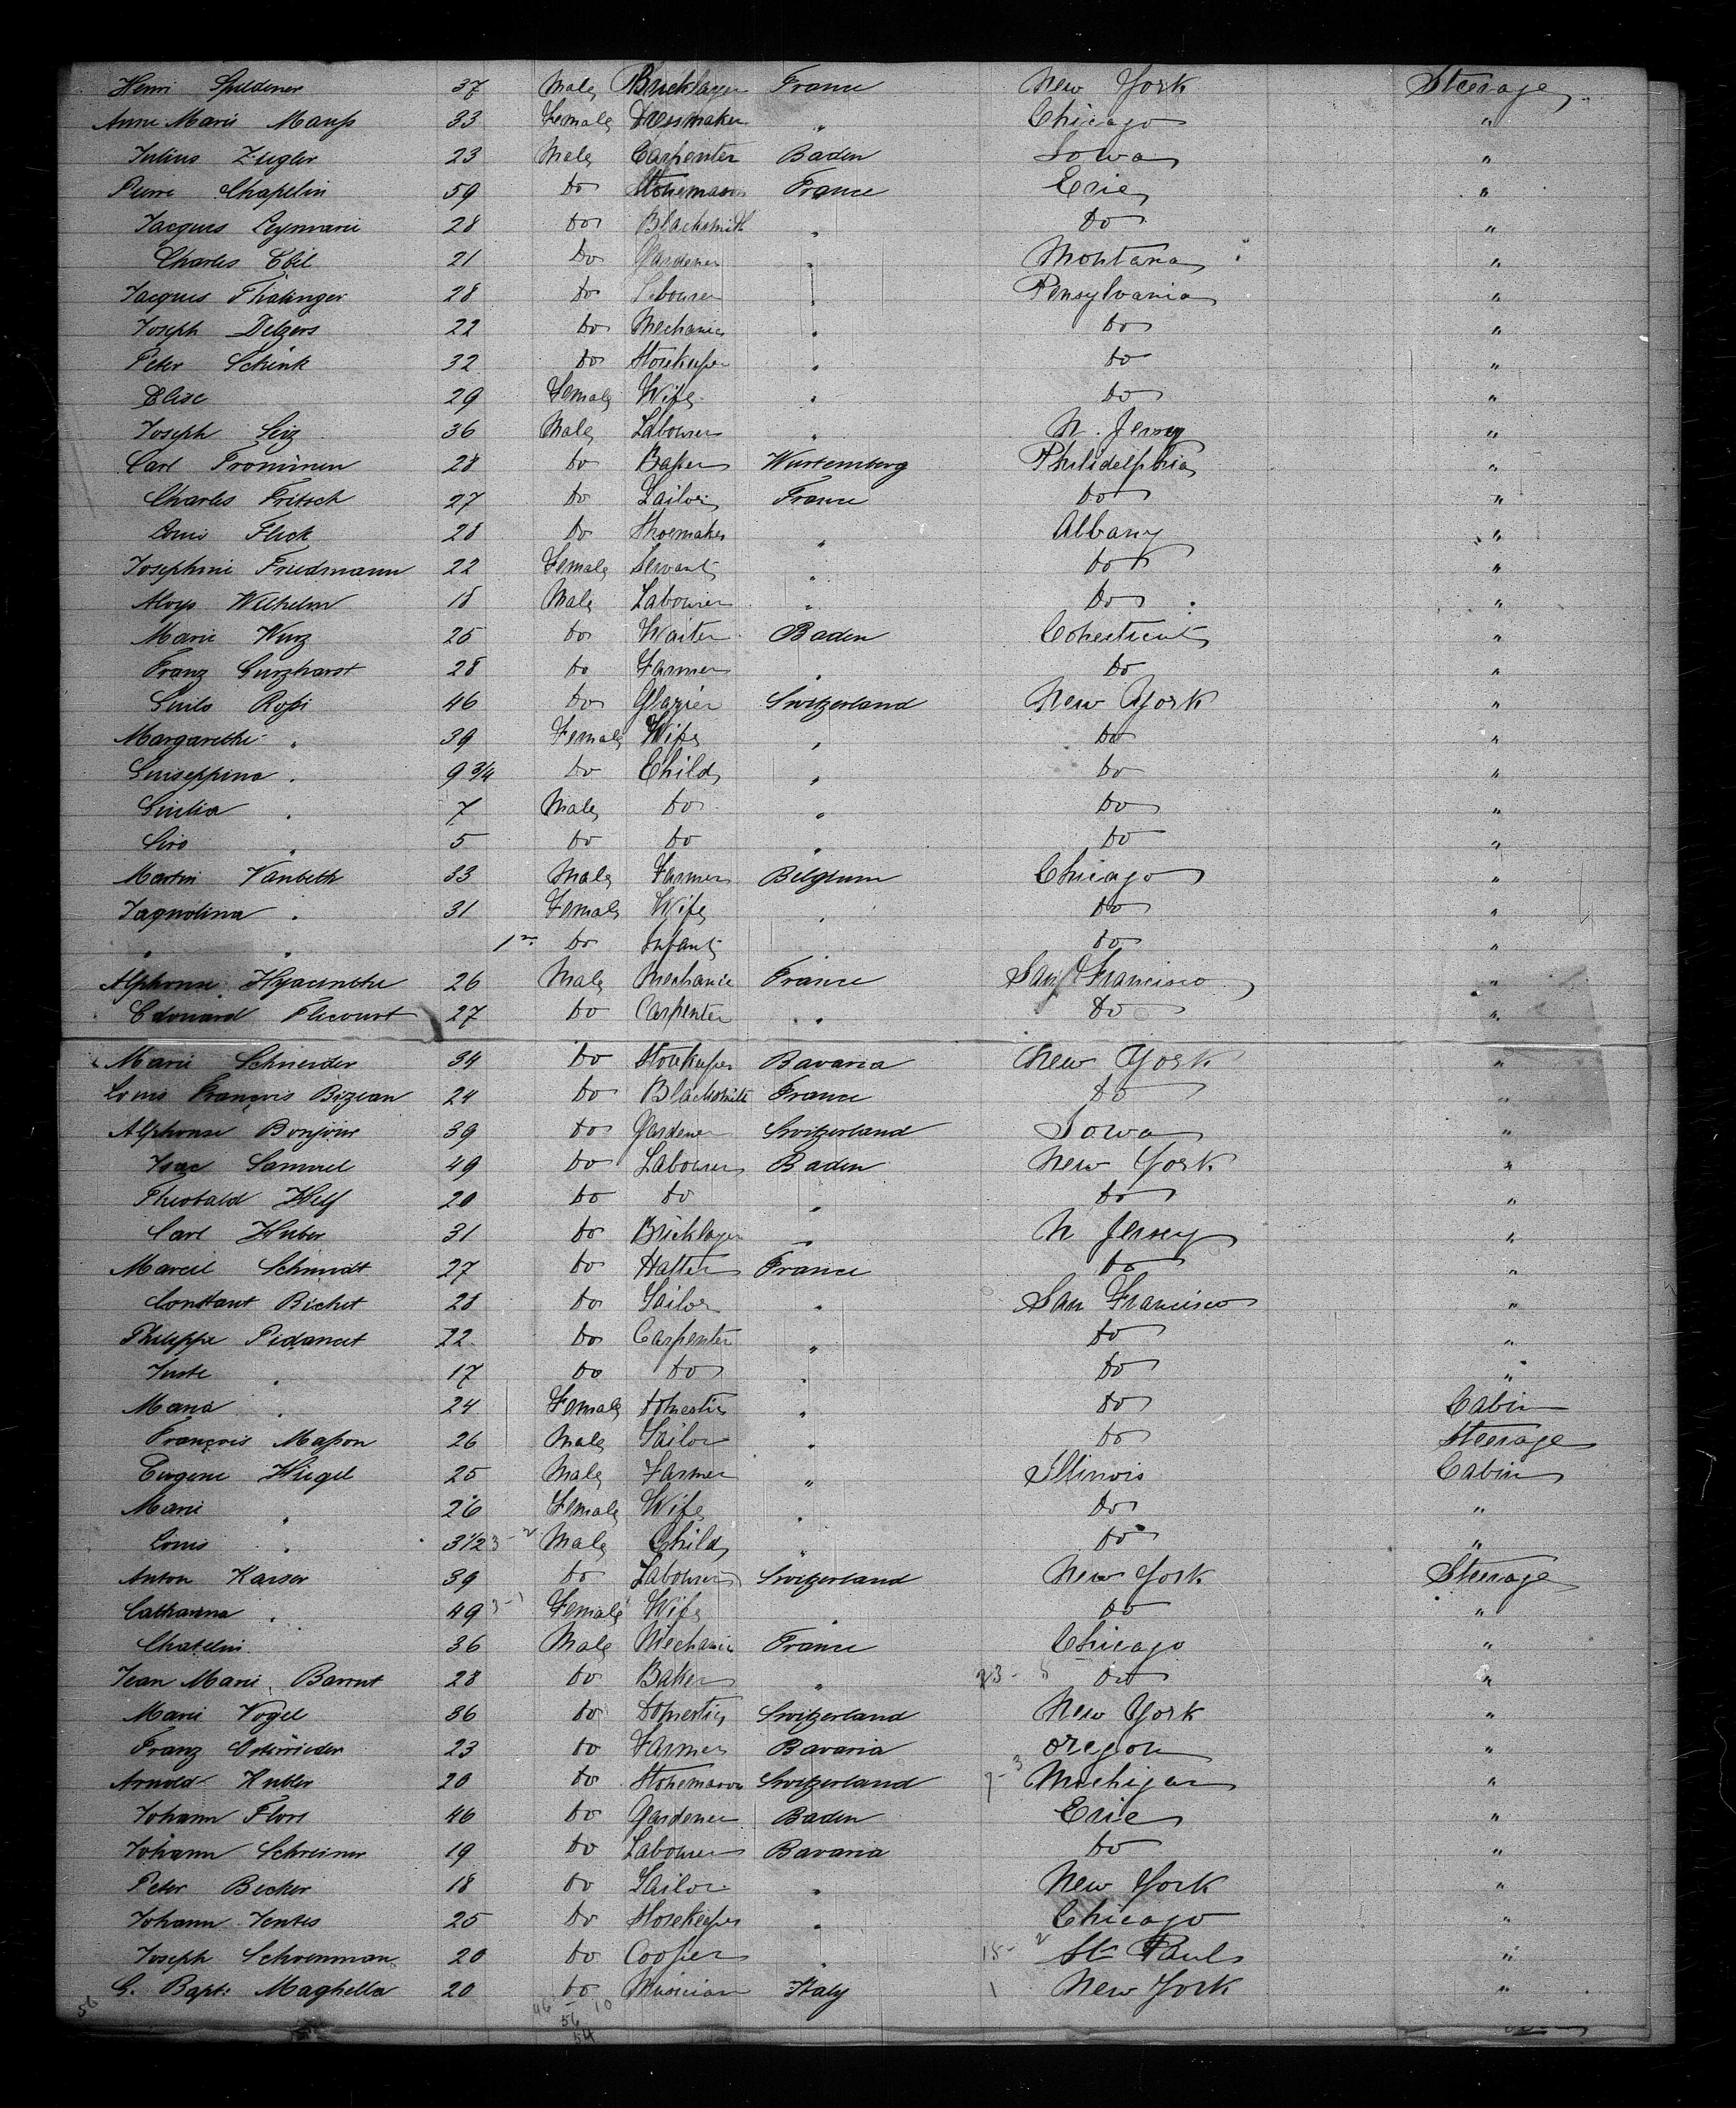 Henri Spildener 37 Male Bricklayer France New York Steerage
Anne Marie Mauss 33 Female Dressmaker " Chicago "
Julius Ziegler 23 Male Carpenter Baden Iowa "
Pierre Chapelin 59 Do Stonemason France Erie "
Jacques Leymarie 28 Do Blacksmith " Do "
Charles Ebel 21 Do Gardener " Montana "
Jacques Thalinger 28 Do Labourer " Pensylvania "
Joseph Delgers 22 Do Mechanic " Do "
Peter Schenk 32 Do Storekeeper " Do "
Elise 29 Female Wife " Do "
Joseph Seiz 36 Male Labourer " N. Jersey "
Carl Trominen 28 Do Baker Wurtemberg Philidelphia "
Charles Fritsch 27 Do Tailor France Do "
Louis Fleck 28 Do Shoemaker " Albany "
Josephine Friedmann 22 Female Servant " Do "
Aloys Wilhelm 18 Male Labourer " Do "
Marie Wurz 25 Do Waiter Baden Conesticut "
Franz Gurzharst 28 Do Farmer " Do "
Guilo Rossi 46 Do Glazier Switzerland New York "
Margarethe " 39 Female Wife " Do "
Guiseppina " 9 3/4 Do Child " Do "
Giulia " 7 Male Do " Do "
Siro " 5 Do Do " Do "
Martin Vanbeth 33 Male Farmer Belgium Chicago "
Jaquolina " 31 Female Wife " Do "
" " 1 Do Infant " Do "
Alphonse Hyacinthe 26 Male Mechanic France San Francisco "
Edouard Flicourt 27 Do Carpenter " Do "
Marie Schneider 34 Do Storekeeper Bavaria New York "
Louis François Bizean 24 Do Blacksmith France Do "
Alphonse Bonjour 39 Do Gardener Switzerland Iowa "
Isac Samuel 49 Do Labourer Baden New York "
Theobald Helf 20 Do Do " Do "
Carl Huber 31 Do Bricklayer " N Jersey "
Marcel Schmidt 27 Do Hatter France Do "
Constant Bichet 28 Do Tailor " San Francisco "
Philippe Pidancet 22 Do Carpenter " Do "
Juste " 17 Do Do " Do "
Maria " 24 Female Domestic " Do Cabin
François Masson 26 Male Tailor " Do Steerage
Eugene Hügel 25 Male Farmer " Illinois Cabin
Marie " 26 Female Wife " Do "
Louis " 3 1/2 3-2 Male Child " Do "
Anton Kaiser 39 Do Labourer Switzerland New York Steerage
Catharina " 49 3-1 Female Wife " Do "
Chatelin 36 Male Mechanic France Chicago "
Jean Marie Barrut 28 Do Baker " 23- Do "
Marie Vogel 36 Do Domestic Switzerland New York "
Franz Osterrieder 23 Do Farmer Bavaria Oregon "
Arnold Kubler 20 Do Stonemason Switzerland 9-3 Michigan "
Johann Flori 46 Do Gardener Baden Erie "
Johann Schreiner 19 Do Labourer Bavaria Do "
Peter Becker 18 Do Tailor " New York "
Johann Jentes 25 Do Storekeeper " Chicago "
Joseph Schoenman 20 Do Cooper " 15-2 St Paul "
G. Bapt: Maghella 20 Do Musician Italy 1 New York "
56 46 10
56
54